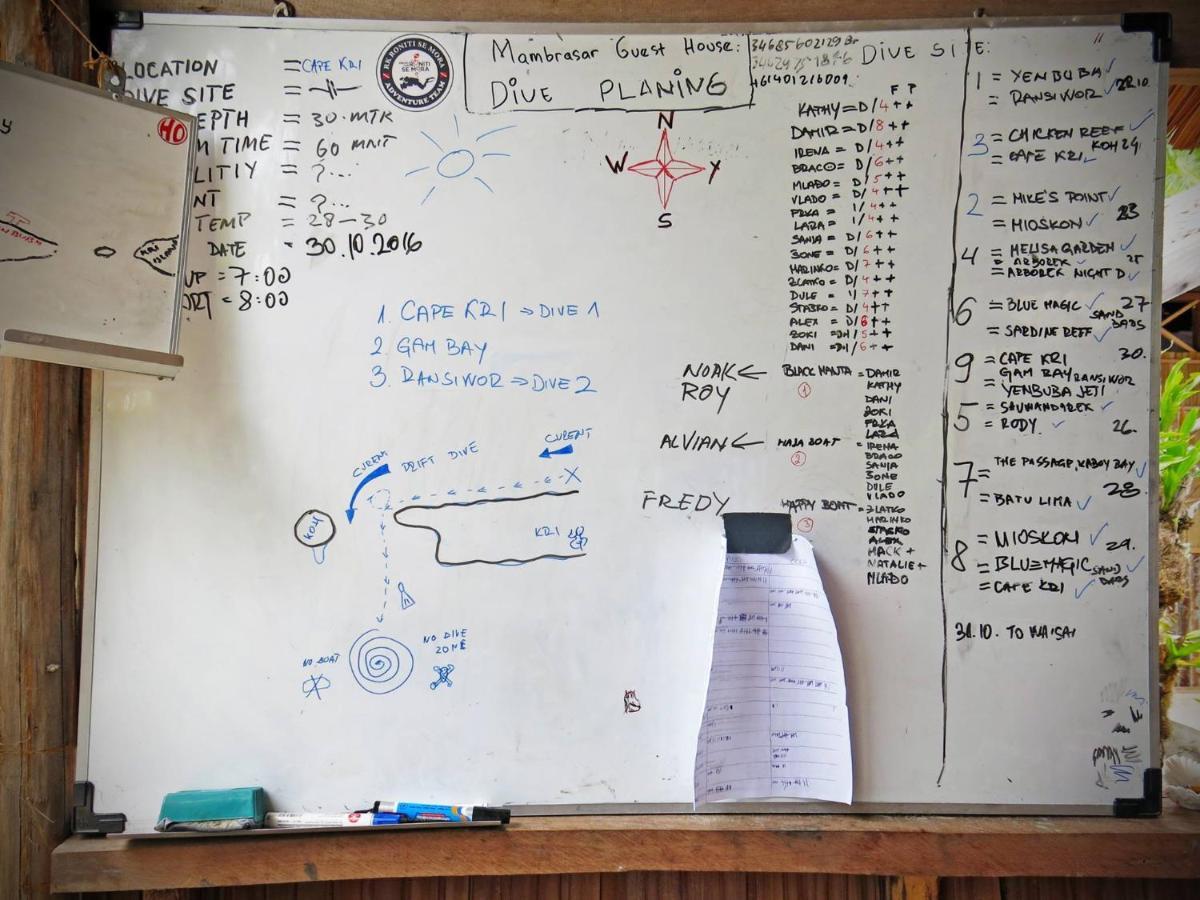 LOCATION = CAPE KRI
DIVE SITE =
EPTH = 30.MTR
M TIME = 60 MNT
LITIY = ?...
NT = ?...
TEMP = 28-30
DATE = 30.10.2016
UP = 7:00
ORT = 8:00
HO
RK RONITI SE MORA
RONITI
SE MORA
ADVENTURE TEAM
Mambrasar Guest House:
DIVE PLANING
N
W Y
S
1. CAPE KRI ⇒ DIVE 1
2 GAM BAY
3. RANSIWOR ⇒ DIVE 2
CURENT
DRIFT DIVE
CURENT
X
KOH
KRI
NO BOAT
NO DIVE
ZONE
F P
KATHY = D/4++
DAMIR = D/8++
IRENA = D/4++
BRACO = D/6++
MLADO = D/5++
VLADO = D/4++
PRKA = 1/4++
LARA = 1/4++
SANJA = D/6++
JONE = D/6++
MARINKO = D/7++
ZLATKO = D/4++
DULE = 1/7++
STASKO = D/4++
ALEX = D/6++
ZOKI = DH/5++
DANI = DH/6++
NOAK ← BLACK MANTA = DAMIR
ROY
1
KATHY
DANI
ZOKI
PRKA
LARA
ALVIAN ← MAJA BOAT = IRENA
2
BRACO
SANJA
JONE
DULE
VLADO
FREDY HAPPY BOAT = ZLATKO
3
MARINKO
STASKO
ALEX
MACK +
NATALIE +
MLADO
DIVE SITE:
1 = YENBUBA ✓
= RANSIWOR ✓ 22.10
3 = CHICKEN REEF ✓
= CAPE KRI ✓ KOH 24.
2 = MIKE'S POINT ✓
= MIOSKON ✓ 23
4 = MELISA GARDEN ✓
= ARBOREK ✓ 25
= ARBOREK NIGHT D ✓
6 = BLUE MAGIC ✓ 27
SAND BARS
= SARDINE REEF ✓
9 = CAPE KRI 30.
= GAM BAY RANSIWOR
YENBUBA JETI
5 = SAUWANDAREK ✓
= RODY ✓ 26.
7 = THE PASSAGE, KABUY BAY ✓
= BATU LIMA ✓ 28
8 = MIOSKON ✓
= BLUE MAGIC SAND BARS ✓ 29.
= CAPE KRI ✓
31.10. TO WAISAI